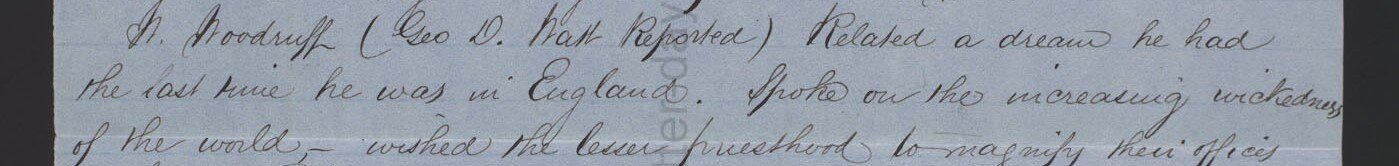 W. Woodruff (Geo D. Watt Reported) Related a dream he had
the last time he was in England. Spoke on the increasing wickedness
of the world, – wished the lesser priesthood to magnify their offices